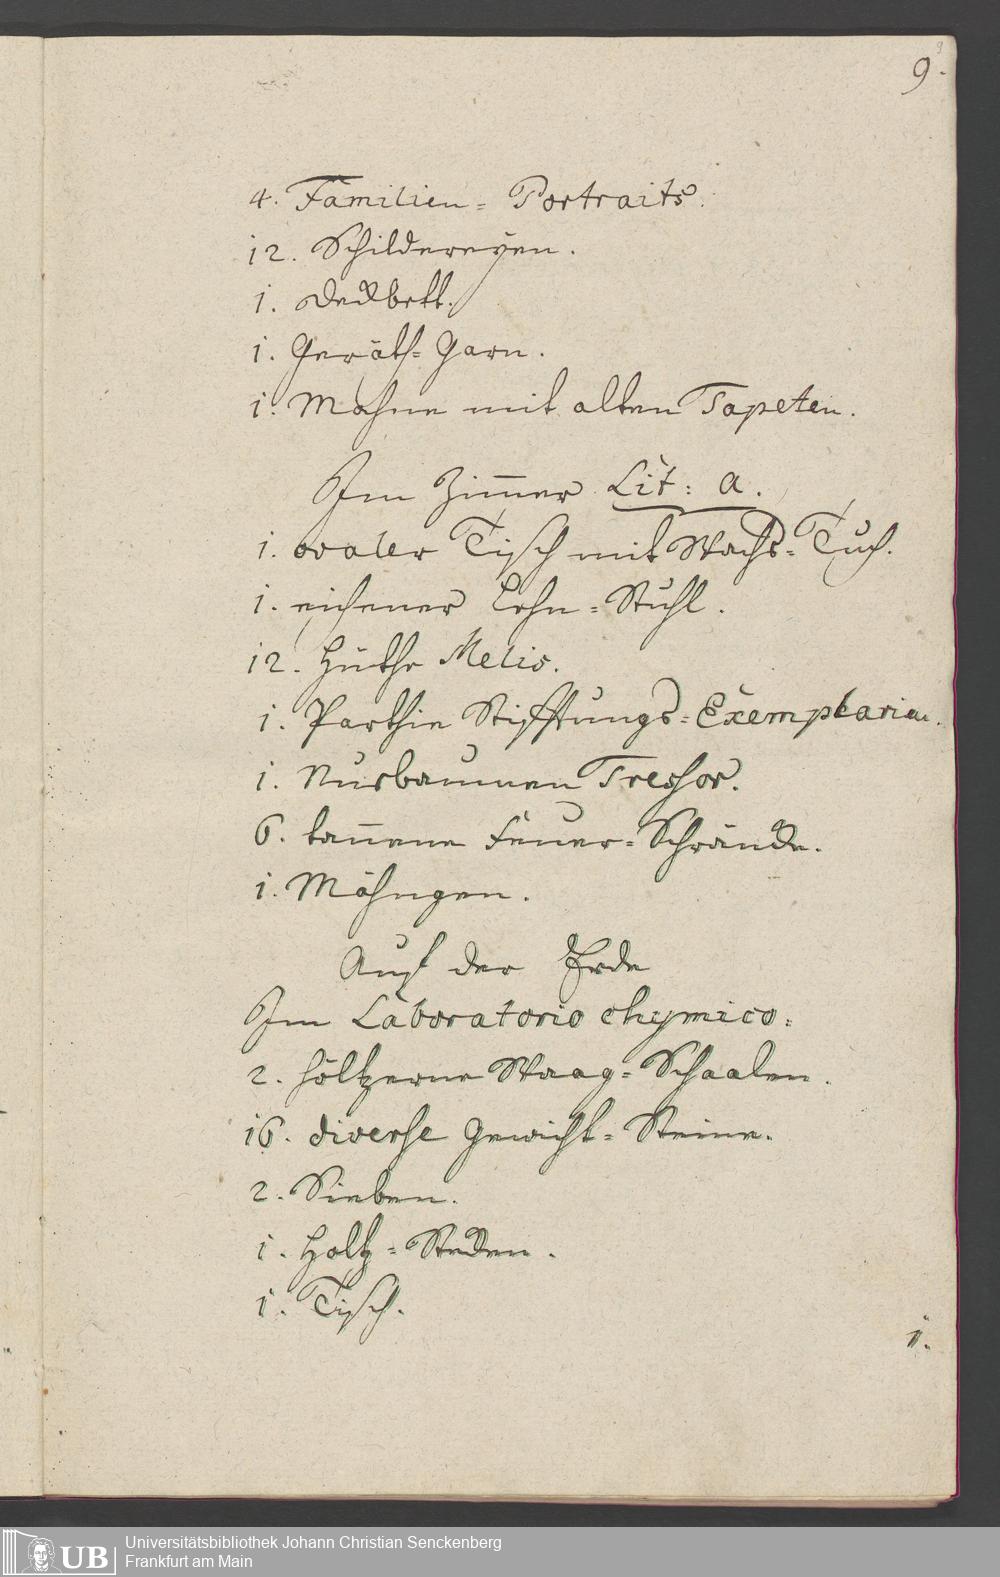 9.
4. Familien= Portraits.
12. Schildereyen.
1. Deckbett.
1. Geräth= Garn.
1. Mahne mit alten Tapeten.
Im Zimmer Lit: a.
1. ovaler Tisch mit Wachs= Tuch.
1. eichener Lehn= Stuhl.
12. Hüthe Melis.
1. Parthie Stifftungs= Exemplarien.
1. Nusbaumen Tresor.
6. tannene Feuer= Schräncke.
1. Mähngen.
Auf der Erde
Im Laboratorio chymico:
2. höltzerne Waag= Schaalen.
16. diverse Gewicht= Steine.
2. Sieben.
1. Holtz= Stecken.
1. Tisch.
1.
UB
Universitätsbibliothek Johann Christian Senckenberg
Frankfurt am Main